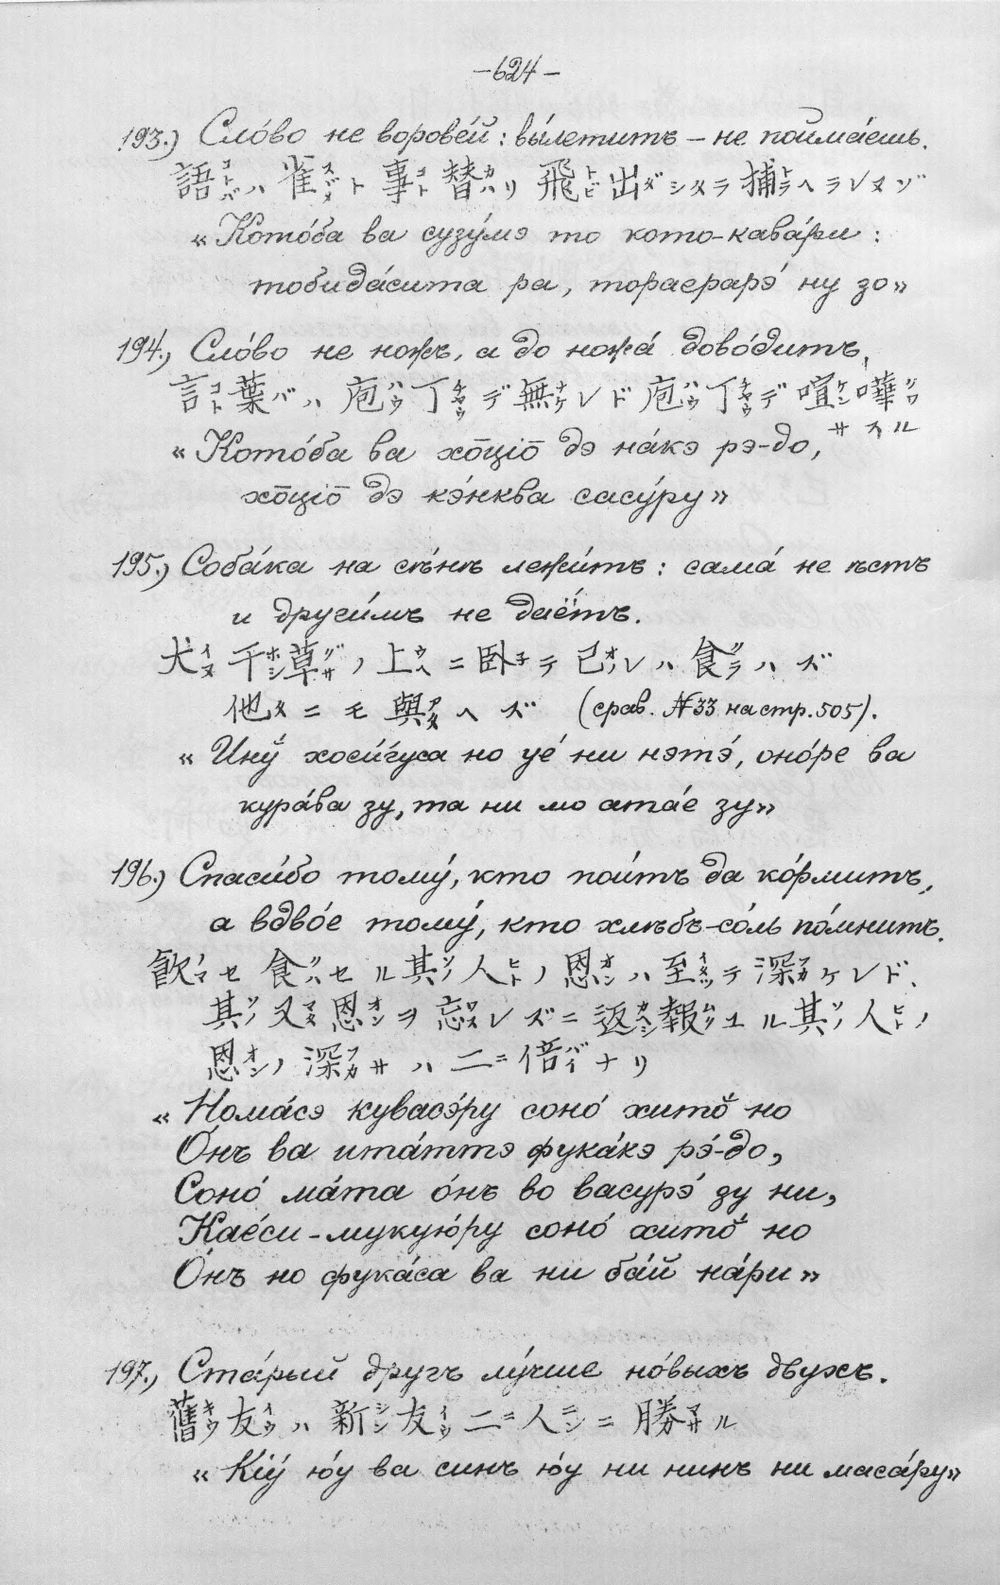 —624—
193.) Сло́во не воробе́й: вы́летитъ – не пойма́ешь.
語コトバハ 雀スヾメト 事コト替カハリ 飛トビ出ダシタラ 捕トラヘラレヌゾ
« Кото́ба ва сузу́мэ то кото-кава́ри :
тобида́сита ра, тораерарэ́ ну зо»
194.) Сло́во не ножъ, а до ножа́ дово́дитъ,
言コト葉バハ 庖ハウ丁チヤウデ無ナケレド 庖ハウ丁チヤウデ喧ケン嘩クワ
サスル
« Кото́ба ва хо̄цiо̄ дэ на́кэ рэ-до,
хо̄цiо̄ дэ кэ́нква сасу́ру»
195.) Соба́ка на сѣнѣ лежи́тъ: сама́ не ѣстъ
и други́мъ не даётъ.
犬イヌ 干ホシ草グサノ 上ウヘニ 卧子テ 己オノレハ 食クラハズ
他タニモ 與アタヘズ (срав. №33 на стр. 505).
« Ину́ хоси́гуса но уе́ ни нэтэ́, оно́ре ва
кура́ва зу, та ни мо ата́е зу»
196.) Спаси́бо тому́, кто пои́тъ да ко́рмитъ,
а вдво́е тому́, кто хлѣбъ-со́ль по́мнитъ.
飲ノマセ 食クハセル 其ソノ人ヒトノ 恩オンハ 至イタツテ 深フカケレド、
其ソノ又マタ恩オンヲ 忘ワスレズニ 返カヘシ報ムクユル 其ソノ人ヒトノ
恩オンノ 深フカサハ 二ニ倍バイナリ
« Нома́сэ кувасэ́ру соно́ хито́ но
О́нъ ва ита́ттэ фука́кэ рэ́-до,
Соно́ ма́та о́нъ во васурэ́ зу ни,
Кае́си-мукую́ру соно́ хито́ но
О́нъ но фука́са ва ни ба́й на́ри»
197.) Ста́рый другъ лу́чше но́выхъ двухъ.
舊キウ友イウハ 新シン友イウ二ニ人ニンニ 勝マサル
« Кiу́ ю́у ва синъ ю́у ни нинъ ни маса́ру»